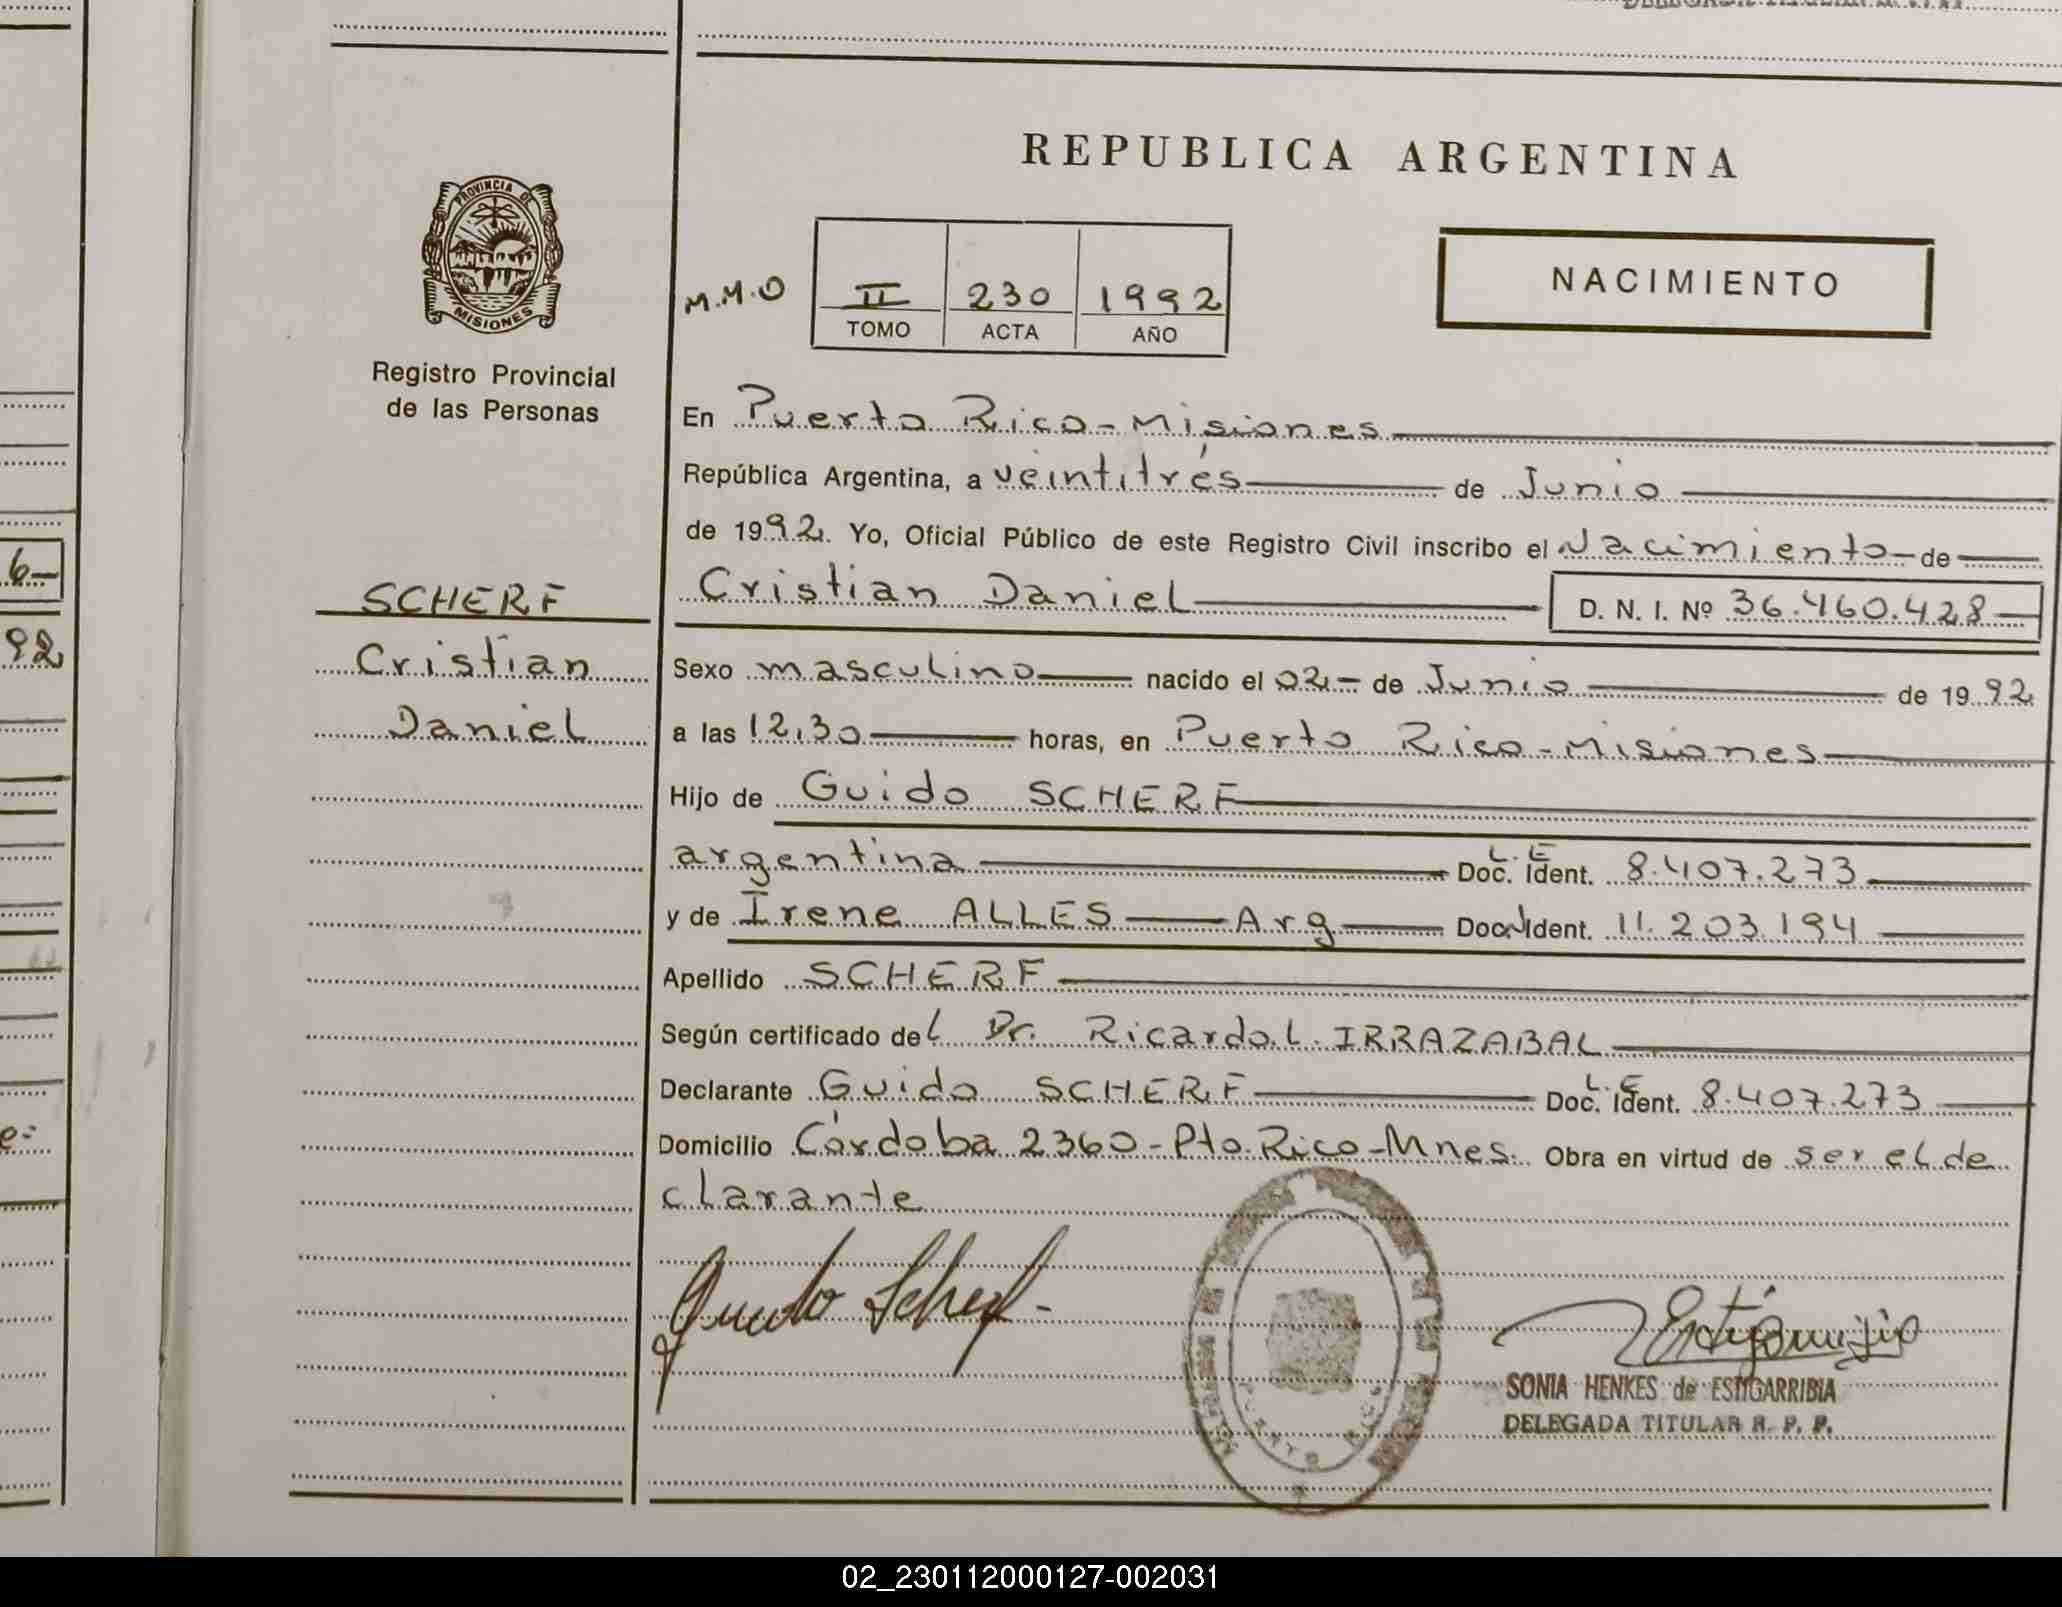 REPUBLICA ARGENTINA
PROVINCIA DE
MISIONES
Registro Provincial
de las Personas
M.M.O
II 230 1992
TOMO ACTA AÑO
NACIMIENTO
SCHERF
Cristian
Daniel
En Puerto Rico - Misiones
República Argentina, a veintitrés de Junio
de 1992. Yo, Oficial Público de este Registro Civil inscribo el Nacimiento de
Cristian Daniel D. N. I. Nº 36.460.428
Sexo masculino nacido el 02 - de Junio de 1992
a las 12,30 horas, en Puerto Rico - Misiones
Hijo de Guido SCHERF
argentina L. E Doc. Ident. 8.407.273
y de Irene ALLES Arg Doc. Ident. 11.203.194
Apellido SCHERF
Según certificado del Dr. Ricardo L. IRRAZABAL
Declarante Guido SCHERF L. E Doc. Ident. 8.407.273
Domicilio Córdoba 2360 - Pto. Rico - Mnes. Obra en virtud de ser el de
clarante
Guido Scherf
PUERTO RICO
SONIA HENKES de ESTIGARRIBIA
DELEGADA TITULAR R. P. P.
6
92
e=
02_230112000127-002031